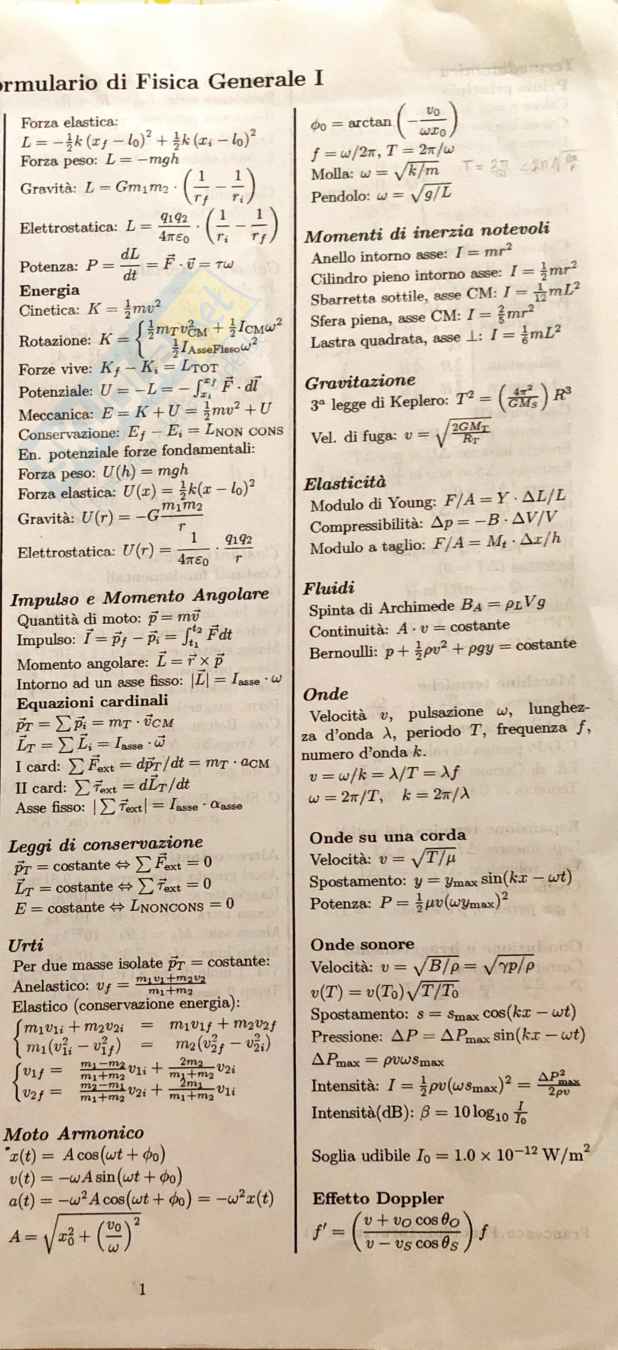 ormulario di Fisica Generale I
Forza elastica:
L = −½k (x_f − l_0)² + ½k (x_i − l_0)²
Forza peso: L = −mgh
Gravità: L = Gm_1m_2 · (1/r_f − 1/r_i)
Elettrostatica: L = q_1q_2/4πε_0 · (1/r_i − 1/r_f)
Potenza: P = dL/dt = F⃗ · v⃗ = τω
Energia
Cinetica: K = ½mv²
Rotazione: K = { ½m_T v²_CM + ½I_CM ω²
½I_AsseFisso ω²
Forze vive: K_f − K_i = L_TOT
Potenziale: U = −L = −∫_{x_i}^{x_f} F⃗ · dl⃗
Meccanica: E = K + U = ½mv² + U
Conservazione: E_f − E_i = L_NON CONS
En. potenziale forze fondamentali:
Forza peso: U(h) = mgh
Forza elastica: U(x) = ½k(x − l_0)²
Gravità: U(r) = −G m_1m_2/r
Elettrostatica: U(r) = 1/4πε_0 · q_1q_2/r
Impulso e Momento Angolare
Quantità di moto: p⃗ = mv⃗
Impulso: I⃗ = p⃗_f − p⃗_i = ∫_{t_1}^{t_2} F⃗dt
Momento angolare: L⃗ = r⃗ × p⃗
Intorno ad un asse fisso: |L⃗| = I_asse · ω
Equazioni cardinali
p⃗_T = ∑ p⃗_i = m_T · v⃗_CM
L⃗_T = ∑ L⃗_i = I_asse · ω⃗
I card: ∑ F⃗_ext = dp⃗_T/dt = m_T · a_CM
II card: ∑ τ⃗_ext = dL⃗_T/dt
Asse fisso: |∑ τ⃗_ext| = I_asse · α_asse
Leggi di conservazione
p⃗_T = costante ⇔ ∑ F⃗_ext = 0
L⃗_T = costante ⇔ ∑ τ⃗_ext = 0
E = costante ⇔ L_NONCONS = 0
Urti
Per due masse isolate p⃗_T = costante:
Anelastico: v_f = (m_1v_1+m_2v_2)/(m_1+m_2)
Elastico (conservazione energia):
{ m_1v_1i + m_2v_2i = m_1v_1f + m_2v_2f
m_1(v²_1i − v²_1f) = m_2(v²_2f − v²_2i)
{ v_1f = (m_1−m_2)/(m_1+m_2) v_1i + 2m_2/(m_1+m_2) v_2i
v_2f = (m_2−m_1)/(m_1+m_2) v_2i + 2m_1/(m_1+m_2) v_1i
Moto Armonico
x(t) = A cos(ωt + φ_0)
v(t) = −ωA sin(ωt + φ_0)
a(t) = −ω²A cos(ωt + φ_0) = −ω²x(t)
A = √(x_0² + (v_0/ω)²)
ϕ_0 = arctan (−v_0/ωx_0)
f = ω/2π, T = 2π/ω
Molla: ω = √(k/m)
Pendolo: ω = √(g/L)
Momenti di inerzia notevoli
Anello intorno asse: I = mr²
Cilindro pieno intorno asse: I = ½mr²
Sbarretta sottile, asse CM: I = 1/12 mL²
Sfera piena, asse CM: I = 2/5 mr²
Lastra quadrata, asse ⊥: I = 1/6 mL²
Gravitazione
3ª legge di Keplero: T² = (4π²/GM_S) R³
Vel. di fuga: v = √(2GM_T/R_T)
Elasticità
Modulo di Young: F/A = Y · ΔL/L
Compressibilità: Δp = −B · ΔV/V
Modulo a taglio: F/A = M_t · Δx/h
Fluidi
Spinta di Archimede B_A = ρ_L V g
Continuità: A · v = costante
Bernoulli: p + ½ρv² + ρgy = costante
Onde
Velocità v, pulsazione ω, lunghez-
za d'onda λ, periodo T, frequenza f,
numero d'onda k.
v = ω/k = λ/T = λf
ω = 2π/T, k = 2π/λ
Onde su una corda
Velocità: v = √(T/μ)
Spostamento: y = y_max sin(kx − ωt)
Potenza: P = ½μv(ωy_max)²
Onde sonore
Velocità: v = √(B/ρ) = √(γp/ρ)
v(T) = v(T_0)√(T/T_0)
Spostamento: s = s_max cos(kx − ωt)
Pressione: ΔP = ΔP_max sin(kx − ωt)
ΔP_max = ρvωs_max
Intensità: I = ½ρv(ωs_max)² = ΔP²_max/2ρv
Intensità(dB): β = 10 log_10 I/I_0
Soglia udibile I_0 = 1.0 × 10⁻¹² W/m²
Effetto Doppler
f′ = ((v + v_O cos θ_O)/(v − v_S cos θ_S)) f
1